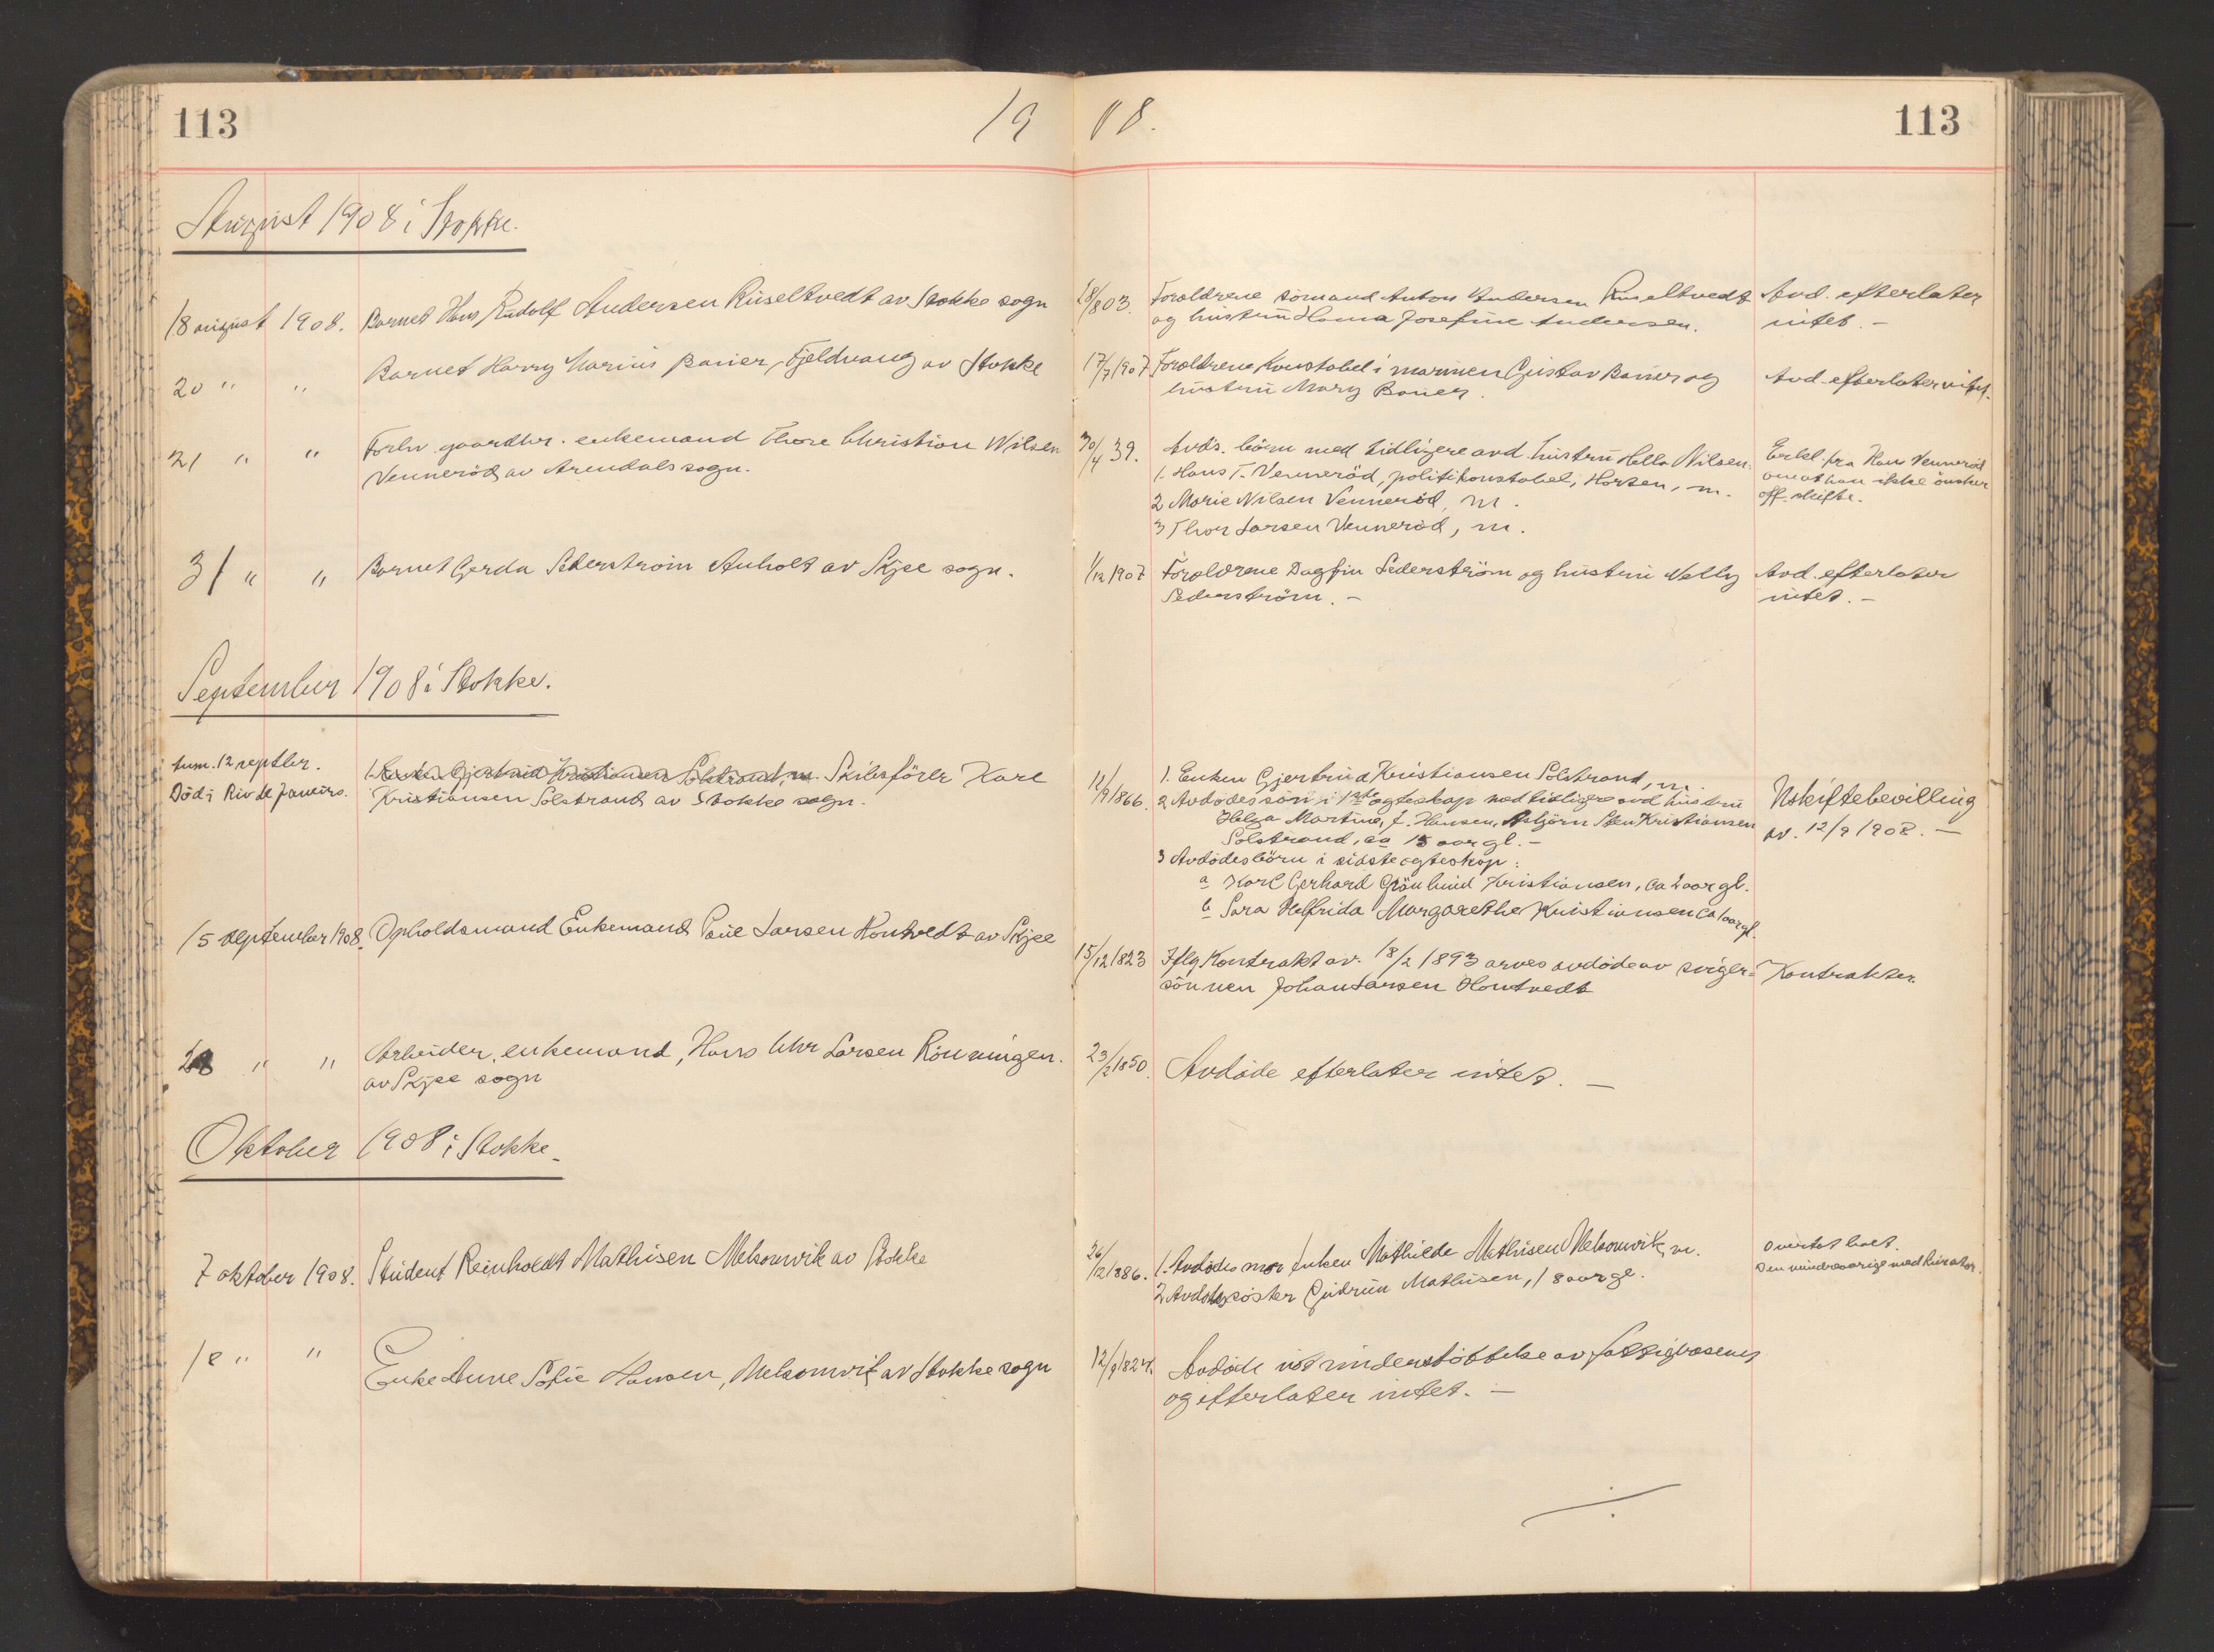 113
19 08.
113
August 1908 i Stokke.
18 august 1908. Barnet Hans Rudolf Andersen Ruseltvedt av Stokke sogn
18/8 03. Foraldrene sömand Anton Andersen Ruseltvedt
og hustru Hanna Josefine Andersen.
Avd. efterlater
intet. –
20 " " Barnet Harry Marius Baner, Fjeldvang av Stokke
17/7 1907 Foraldrene, konstabel i marinen Gustav Baner og
hustru Mary Baner.
Avd. efterlater intet.
21 " " Forhv. gaardbr. enkemand Thore Christian Nilsen
Venneröd av Arendals sogn.
30/4 39. Avds. börn med tidligere avd. hustru Hella Nilsen:
1. Hans T. Venneröd, politikonstabel, Horten, m.
2 Marie Nilsen Venneröd, m.
3 Thor Larsen Venneröd, m.
Erkl. fra Hans Venneröd
om at han ikke önsker
off. skifte.
31 " " Barnet Gerda Sederström Anholt av Skjee sogn.
1/12 1907 Foraldrene Dagfin Sederström og hustru Nelly
Sederström. –
Avd. efterlater
intet. –
September 1908 i Stokke.
12 septbr.
Död i Rio de Janeiro.
1. Enken Gjertrud Kristiansen Solstrand, m. Skibsförer Karl
Kristiansen Solstrand av Stokke sogn.
/9 1866.
1. Enken Gjertrud Kristiansen Solstrand, m.
2 Avdödes sön i 1ste egteskap med tidligere avd hustru
Helga Martine, f. Hansen, Asbjörn Sten Kristiansen
Solstrand, ca 15 aar gl. –
3 Avdödes börn i sidste egteskap:
a Karl Gerhard Grönlund Kristiansen, ca 2 aar gl.
b Sara Helfrida Margarethe Kristiansen ca 1 aar gl.
Uskiftebevilling
av. 12/9 1908. –
15 september 1908. Opholdsmand Enkemand Paul Larsen Hontvedt av Skjee
15/12 1823 Iflg Kontrakt av 18/2 1893 arves avdöde av sviger-
sönnen Johan Larsen Hontvedt
Kontrakter.
28 " " Arbeider, enkemand, Hans Chr Larsen Rönningen.
av Skjee sogn
23/2 1850. Avdöde efterlater intet. –
Oktober 1908 i Stokke.
7 oktober 1908. Student Reinholdt Mathisen Melsomvik av Stokke
26/12 1886. 1. Avdödes mor Enken Mathilde Mathisen Melsomvik, m.
2 Avdödes söster Gudrun Mathisen, 18 aar gl.
Overtat boet.
Den mindreaarige med kurator.
18 " " Enke Anne Sofie Hansen, Melsomvik av Stokke sogn
12/9 1824. Avdöde understöttelse av fattigvæsenet
og efterlater intet. –